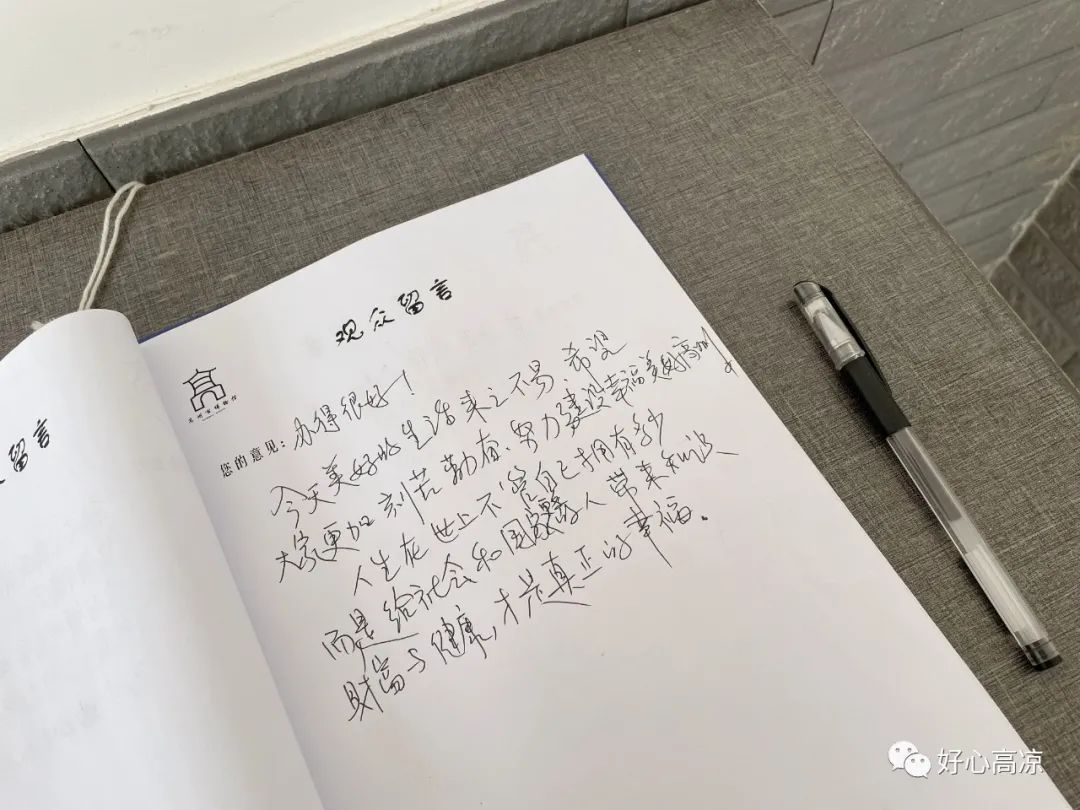 留言
观众留言
高州市博物馆
您的意见：办得很好！
今天美好的生活来之不易，希望
大家更加刻苦勤奋，努力建设幸福美好高州！
人生在世上不管自己拥有多少
而是给社会和国家、人带来知识
财富与健康，才是真正的幸福。
好心高凉